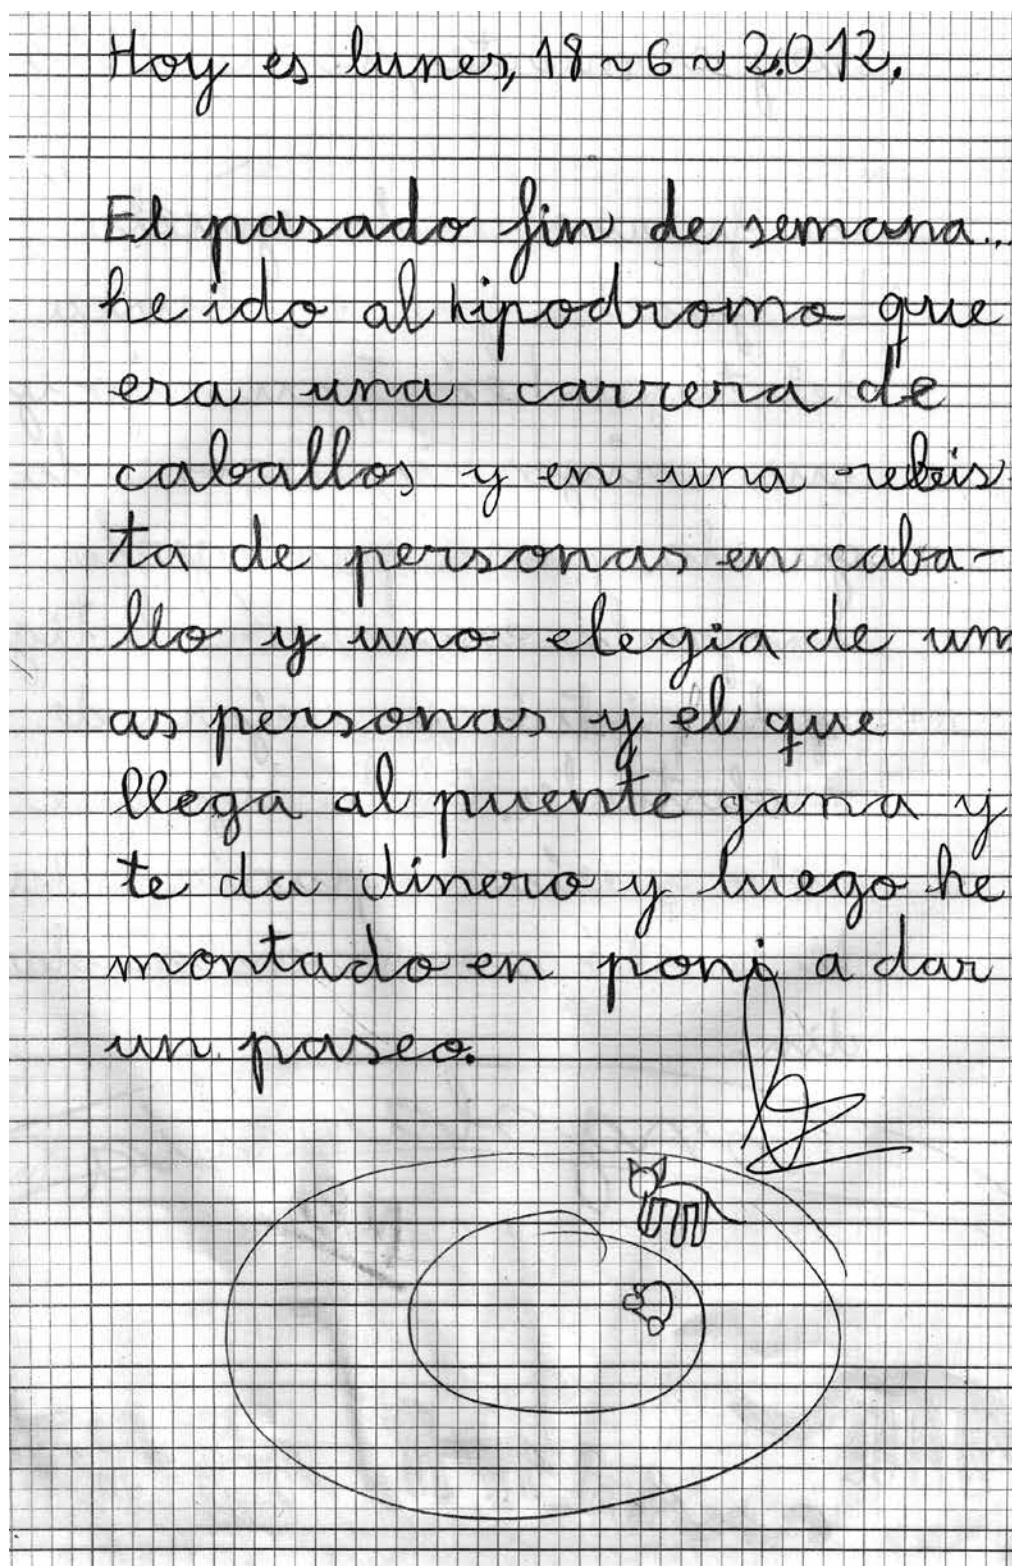 Hoy es lunes, 18~6~2.012.
El pasado fin de semana...
he ido al hipodromo que
era una carrera de
caballos y en una rebis
ta de personas en caba-
llo y uno elegia de un
as personas y él que
llega al puente gana y
te da dinero y luego he
montado en poni a dar
un paseo.